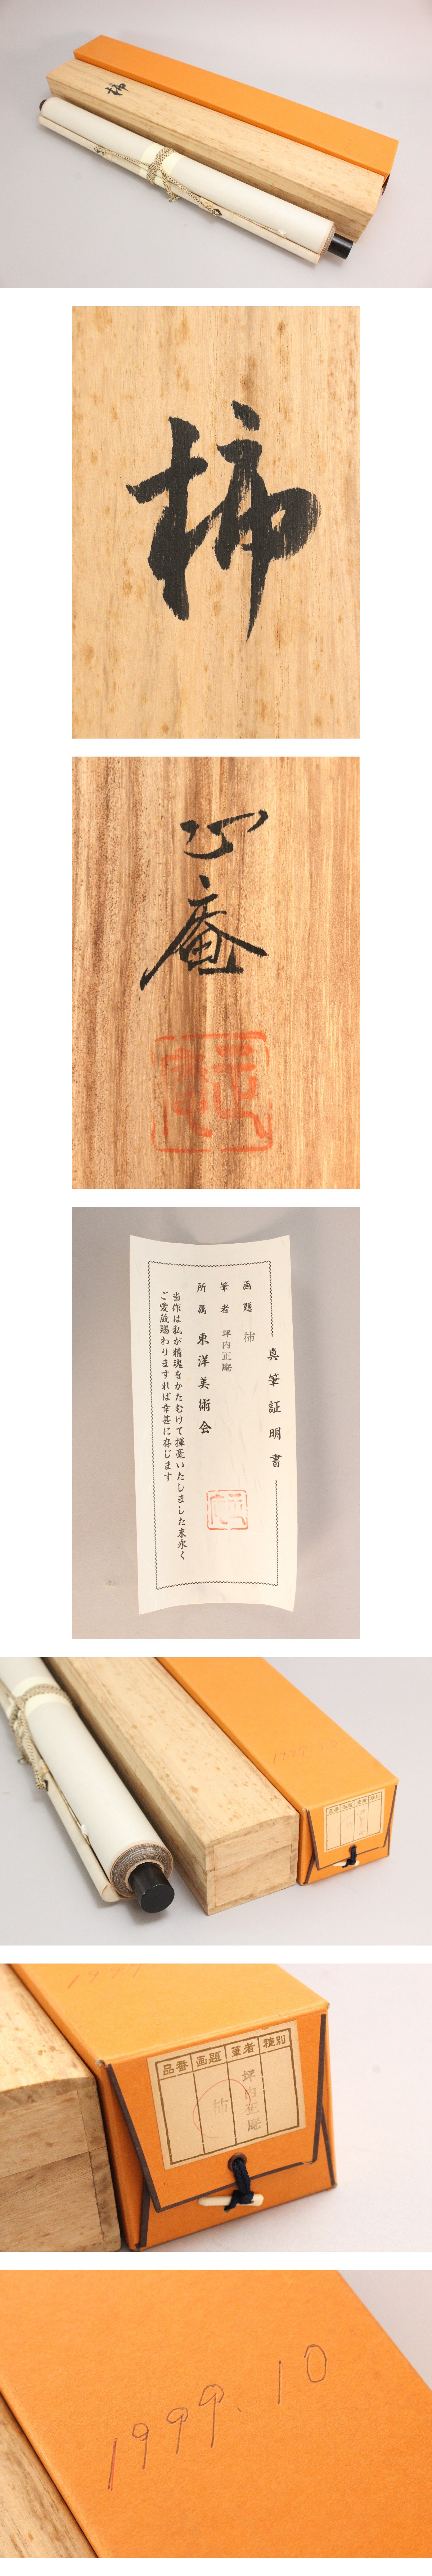 柿
柿
正庵
真筆証明書
画題 柿
筆者 坪内正庵
所属 東洋美術会
当作は私が精魂をかたむけて揮毫いたしました末永く
ご愛蔵賜わりますれば幸甚に存じます
1999.10
品番 画題 筆者 種別
1999
品番 画題 筆者 種別
柿 坪内正庵
1999.10